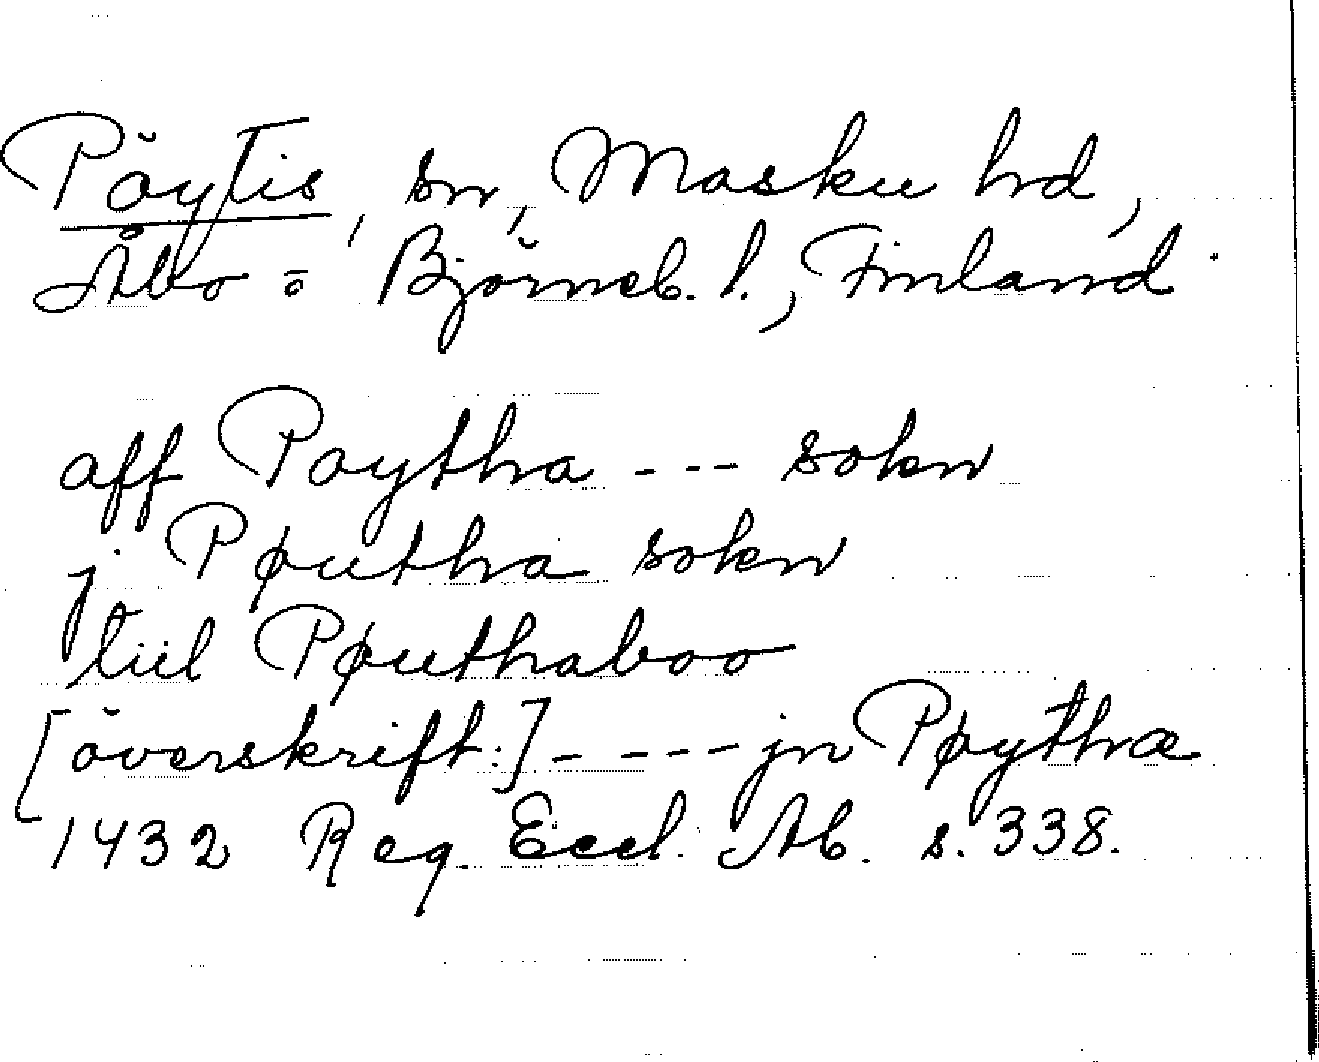 Pöytis, sn, Masku hd,
Åbo o Björneb. l., Finland
aff Poytha --- sokn
j Pøutha sokn
tiil Pøuthaboo
[överskrift:] ---- jn Pøythæ
1432 Reg. Eccl. Ab. s. 338.